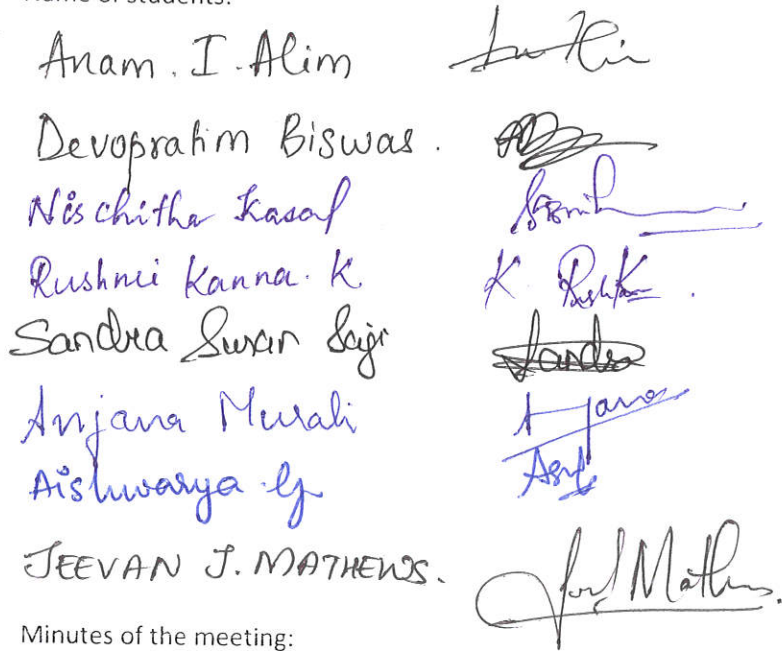 Name of students:
Anam. I. Alim
Devopratim Biswas.
Nischitha Kasaf
Rushmi Kanna. K.
Sandra Susan Saji Sandra
Anjana Murali
Aishwarya G
JEEVAN J. MATHEWS.
Minutes of the meeting: